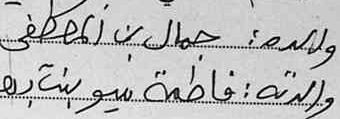 والده: جمال بن المصطفى
والدته: فاطمة بنت